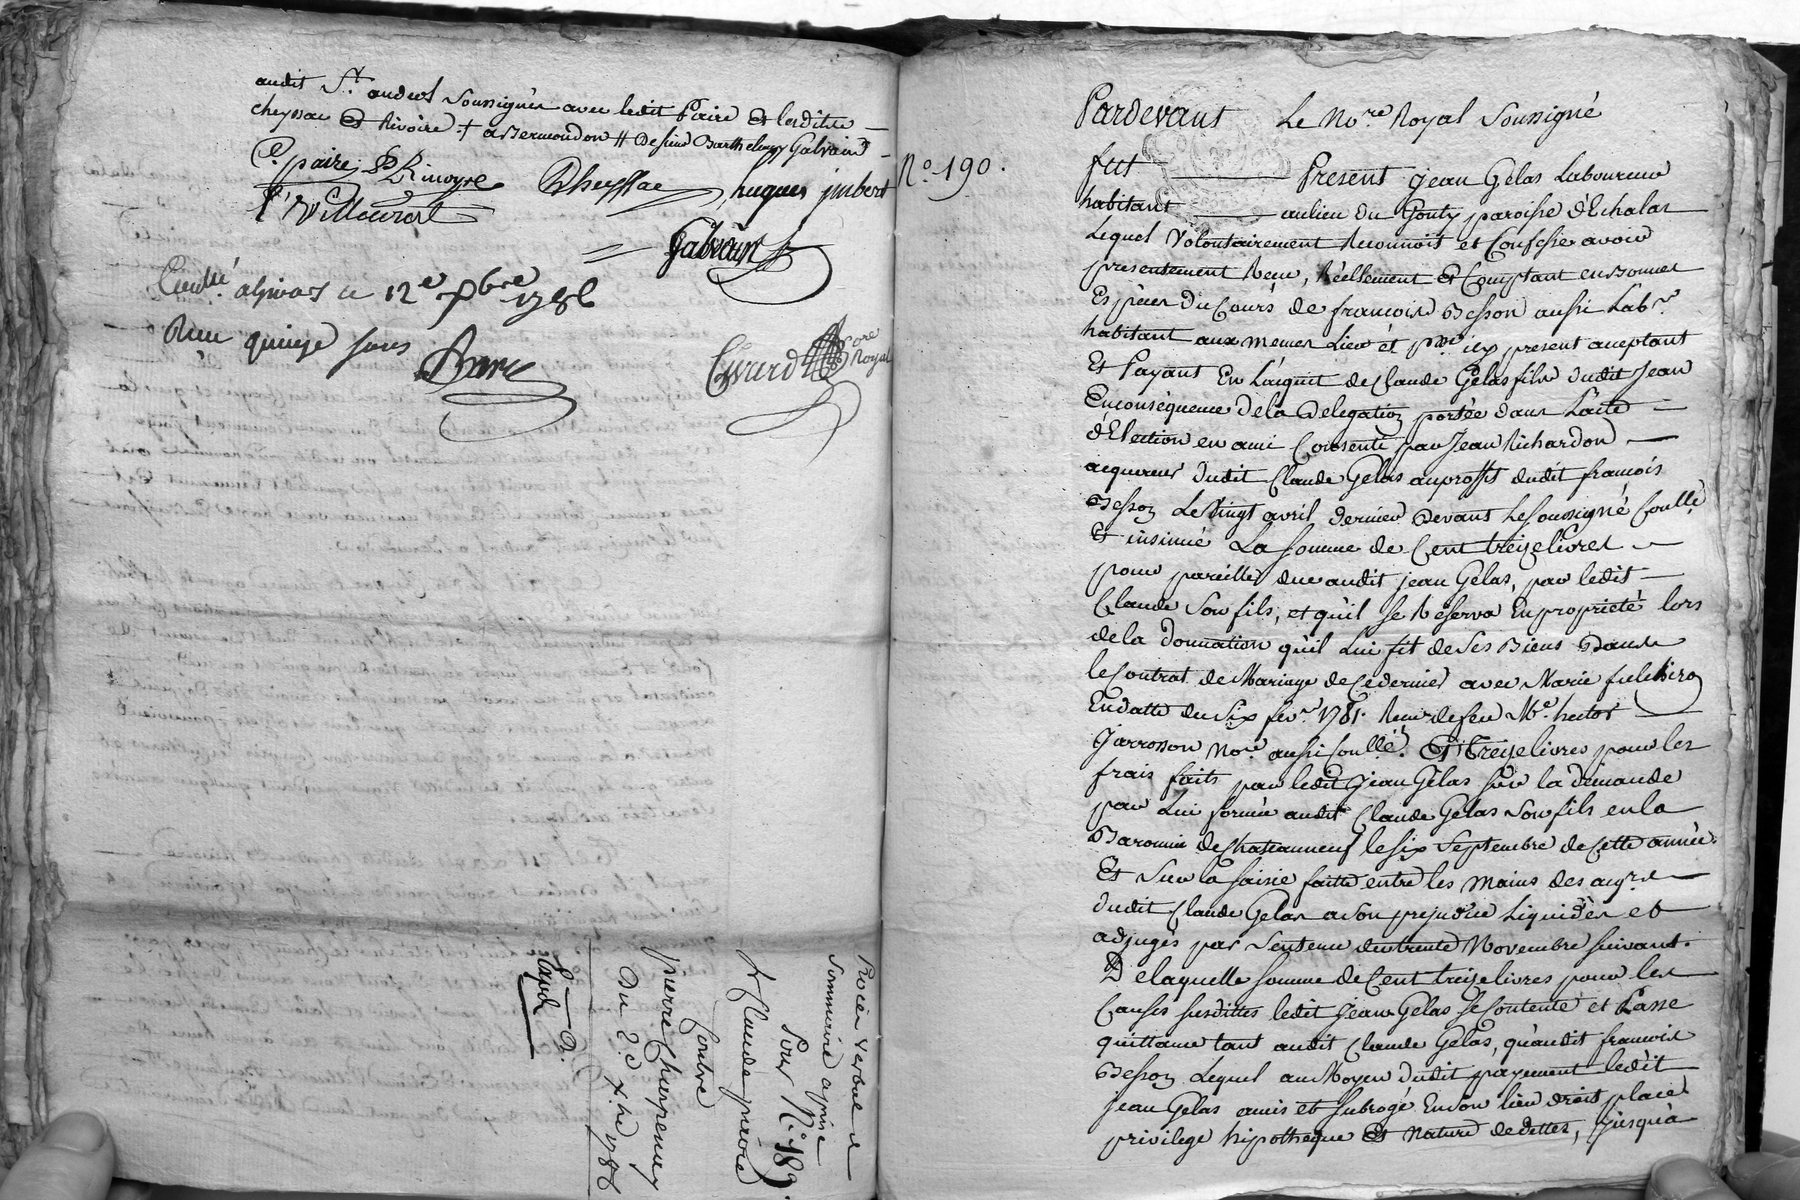 audit St. andeol Soussignés avec ledit Paire et lesditte
cheyssac et Rivoire + a Bermondon # de sieur Barthelemy Galvain
C. paire P Rivoyre Dheyssac hugues jmbert
Galvain
Conllé a givors ce 12e Xbre 1786
Reçu quinze sous
Girard Nore Royal
Procès verbal
Sommaire aprise
Pour N.º 189.
Sr Claude privré
Contre
pierre Cherpenay
Du 2e Xbre 1786
N.º 190.
Pardevant Le No.re Royal Soussigné
fut Present Jean Gélas Laboureur
habitant aulieu du Gouty paroisse d'Echalas
Lequel Volontairement Reconnoit et Confesse avoir
presentement Reçu, Réellement et Comptant en bonnes
Espèces du Cours de francois Besson aussi Lab.r
habitant aux memes Lieu et p.sse icy present aceptant
Et Payant En L'aquit de Claude Gélas fils dudit Jean
En conséquence de la Délégation portée dans L'acte
d'Election en ami Consenti par Jean Richardon
acquereur dudit Claude Gelas au proffit dudit francois
Besson Le Vingt avril dernier Devant Le Soussigné Conllé
Et insinué La Somme de Cent treize livres
pour pareille due audit jean Gélas, par ledit
Claude Son fils, et qu'il se Réserva En propriété lors
de la Donnation qu'il Lui fit de Ses Biens Dans
le Contrat de Mariage de Ce dernier avec Marie fulchiron
En datte du Six fev.r 1781. Reçu de feu M.e hector
Jarrosson No.re aussi Conllé. Et treize livres pour les
frais faits par ledit Jean Gélas sur la demande
par Lui formée audit Claude Gélas Son fils en la
Baronnie de Chateauneuf le six Septembre de Cette année.
Et Sur la Saisie faitte entre les Mains des acq.rs
dudit Claude Gelas a Son prejudice Liquidés et
adjugés par Sentence du trente Novembre Suivant.
De laquelle Somme de Cent treize livres pour les
Causes Susdittes ledit Jean Gelas Se Contente et Passe
quittance tant audit Claude Gélas, qu'audit francois
Besson Lequel au Moyen dudit payement ledit
Jean Gélas amis et Subrogé En Son lieu droit place
privilege hipotheque et Nature de dettes, jusqu'à